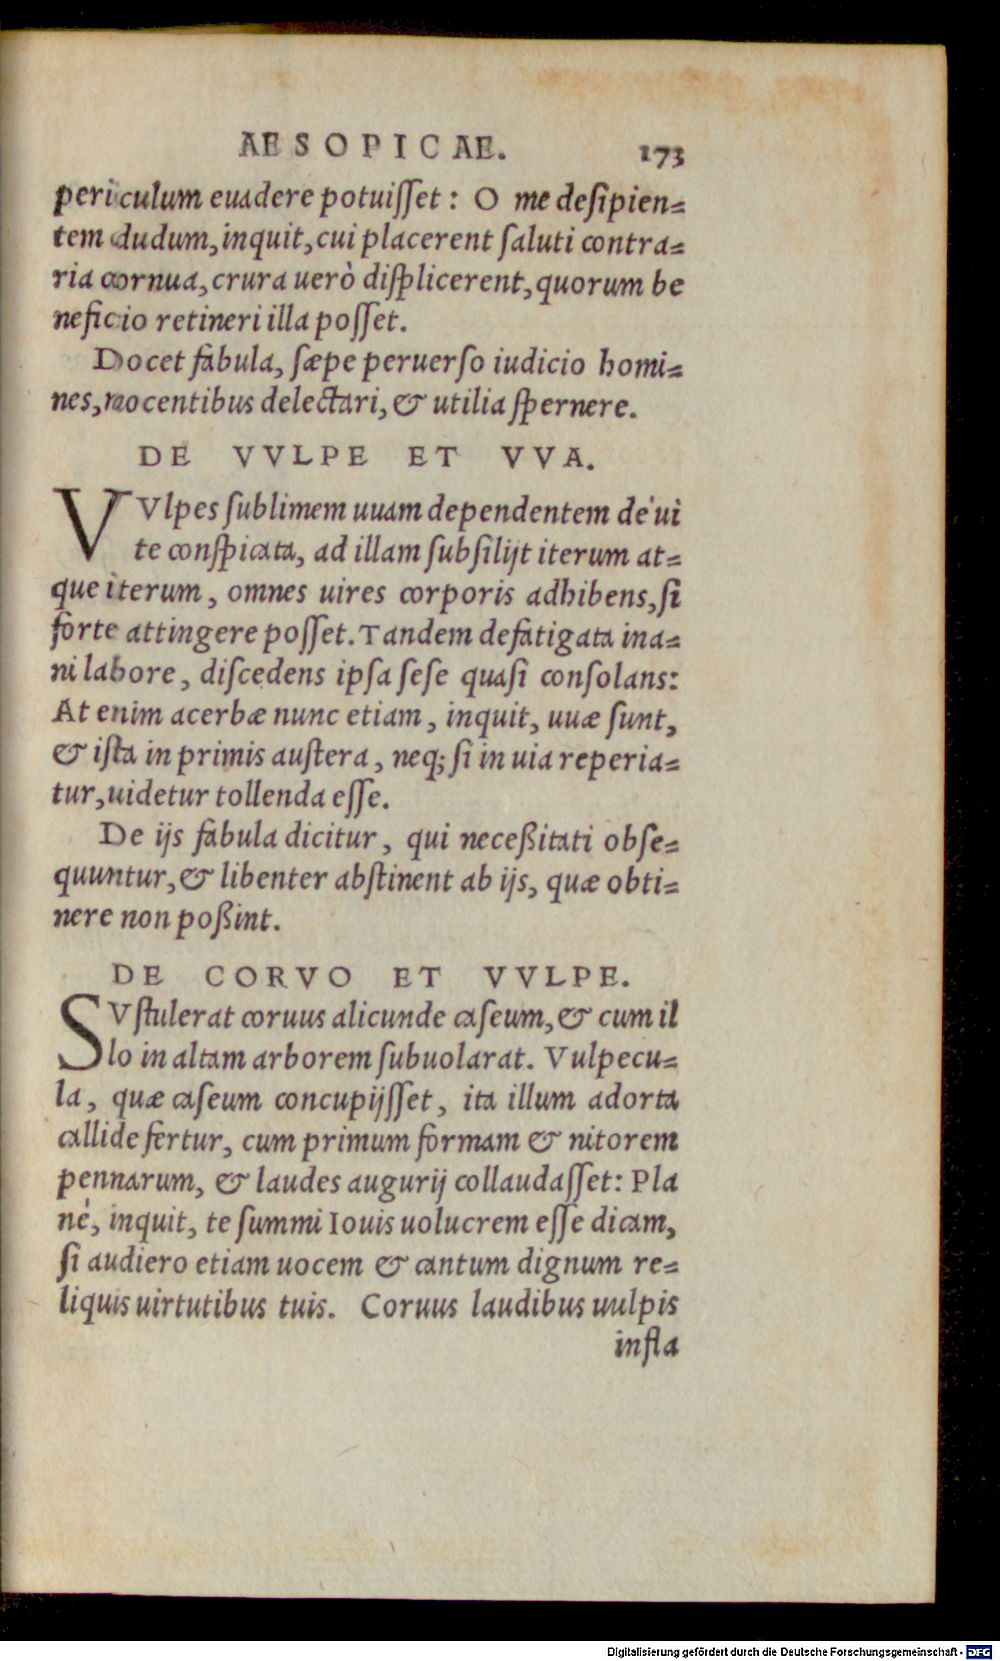 AESOPICAE. 173
periculum euadere potuisset: O me desipien=
tem dudum, inquit, cui placerent saluti contra=
ria cornua, crura uerò displicerent, quorum be
neficio retineri illa posset.
Docet fabula, sæpe peruerso iudicio homi=
nes, nocentibus delectari, & utilia spernere.
DE VVLPE ET VVA.
VVlpes sublimem uuam dependentem de ui
te conspicata, ad illam subsilijt iterum at=
que iterum, omnes uires corporis adhibens, si
forte attingere posset. Tandem defatigata ina=
ni labore, discedens ipsa sese quasi consolans:
At enim acerbæ nunc etiam, inquit, uuæ sunt,
& ista in primis austera, neq; si in uia reperia=
tur, uidetur tollenda esse.
De ijs fabula dicitur, qui neceßitati obse=
quuntur, & libenter abstinent ab ijs, quæ obti=
nere non poßint.
DE CORVO ET VVLPE.
SVstulerat coruus alicunde caseum, & cum il
lo in altam arborem subuolarat. Vulpecu=
la, quæ caseum concupijsset, ita illum adorta
callide fertur, cum primum formam & nitorem
pennarum, & laudes augurij collaudasset: Pla
nè, inquit, te summi Iouis uolucrem esse dicam,
si audiero etiam uocem & cantum dignum re=
liquis uirtutibus tuis. Coruus laudibus uulpis
infla
Digitalisierung gefördert durch die Deutsche Forschungsgemeinschaft - DFG